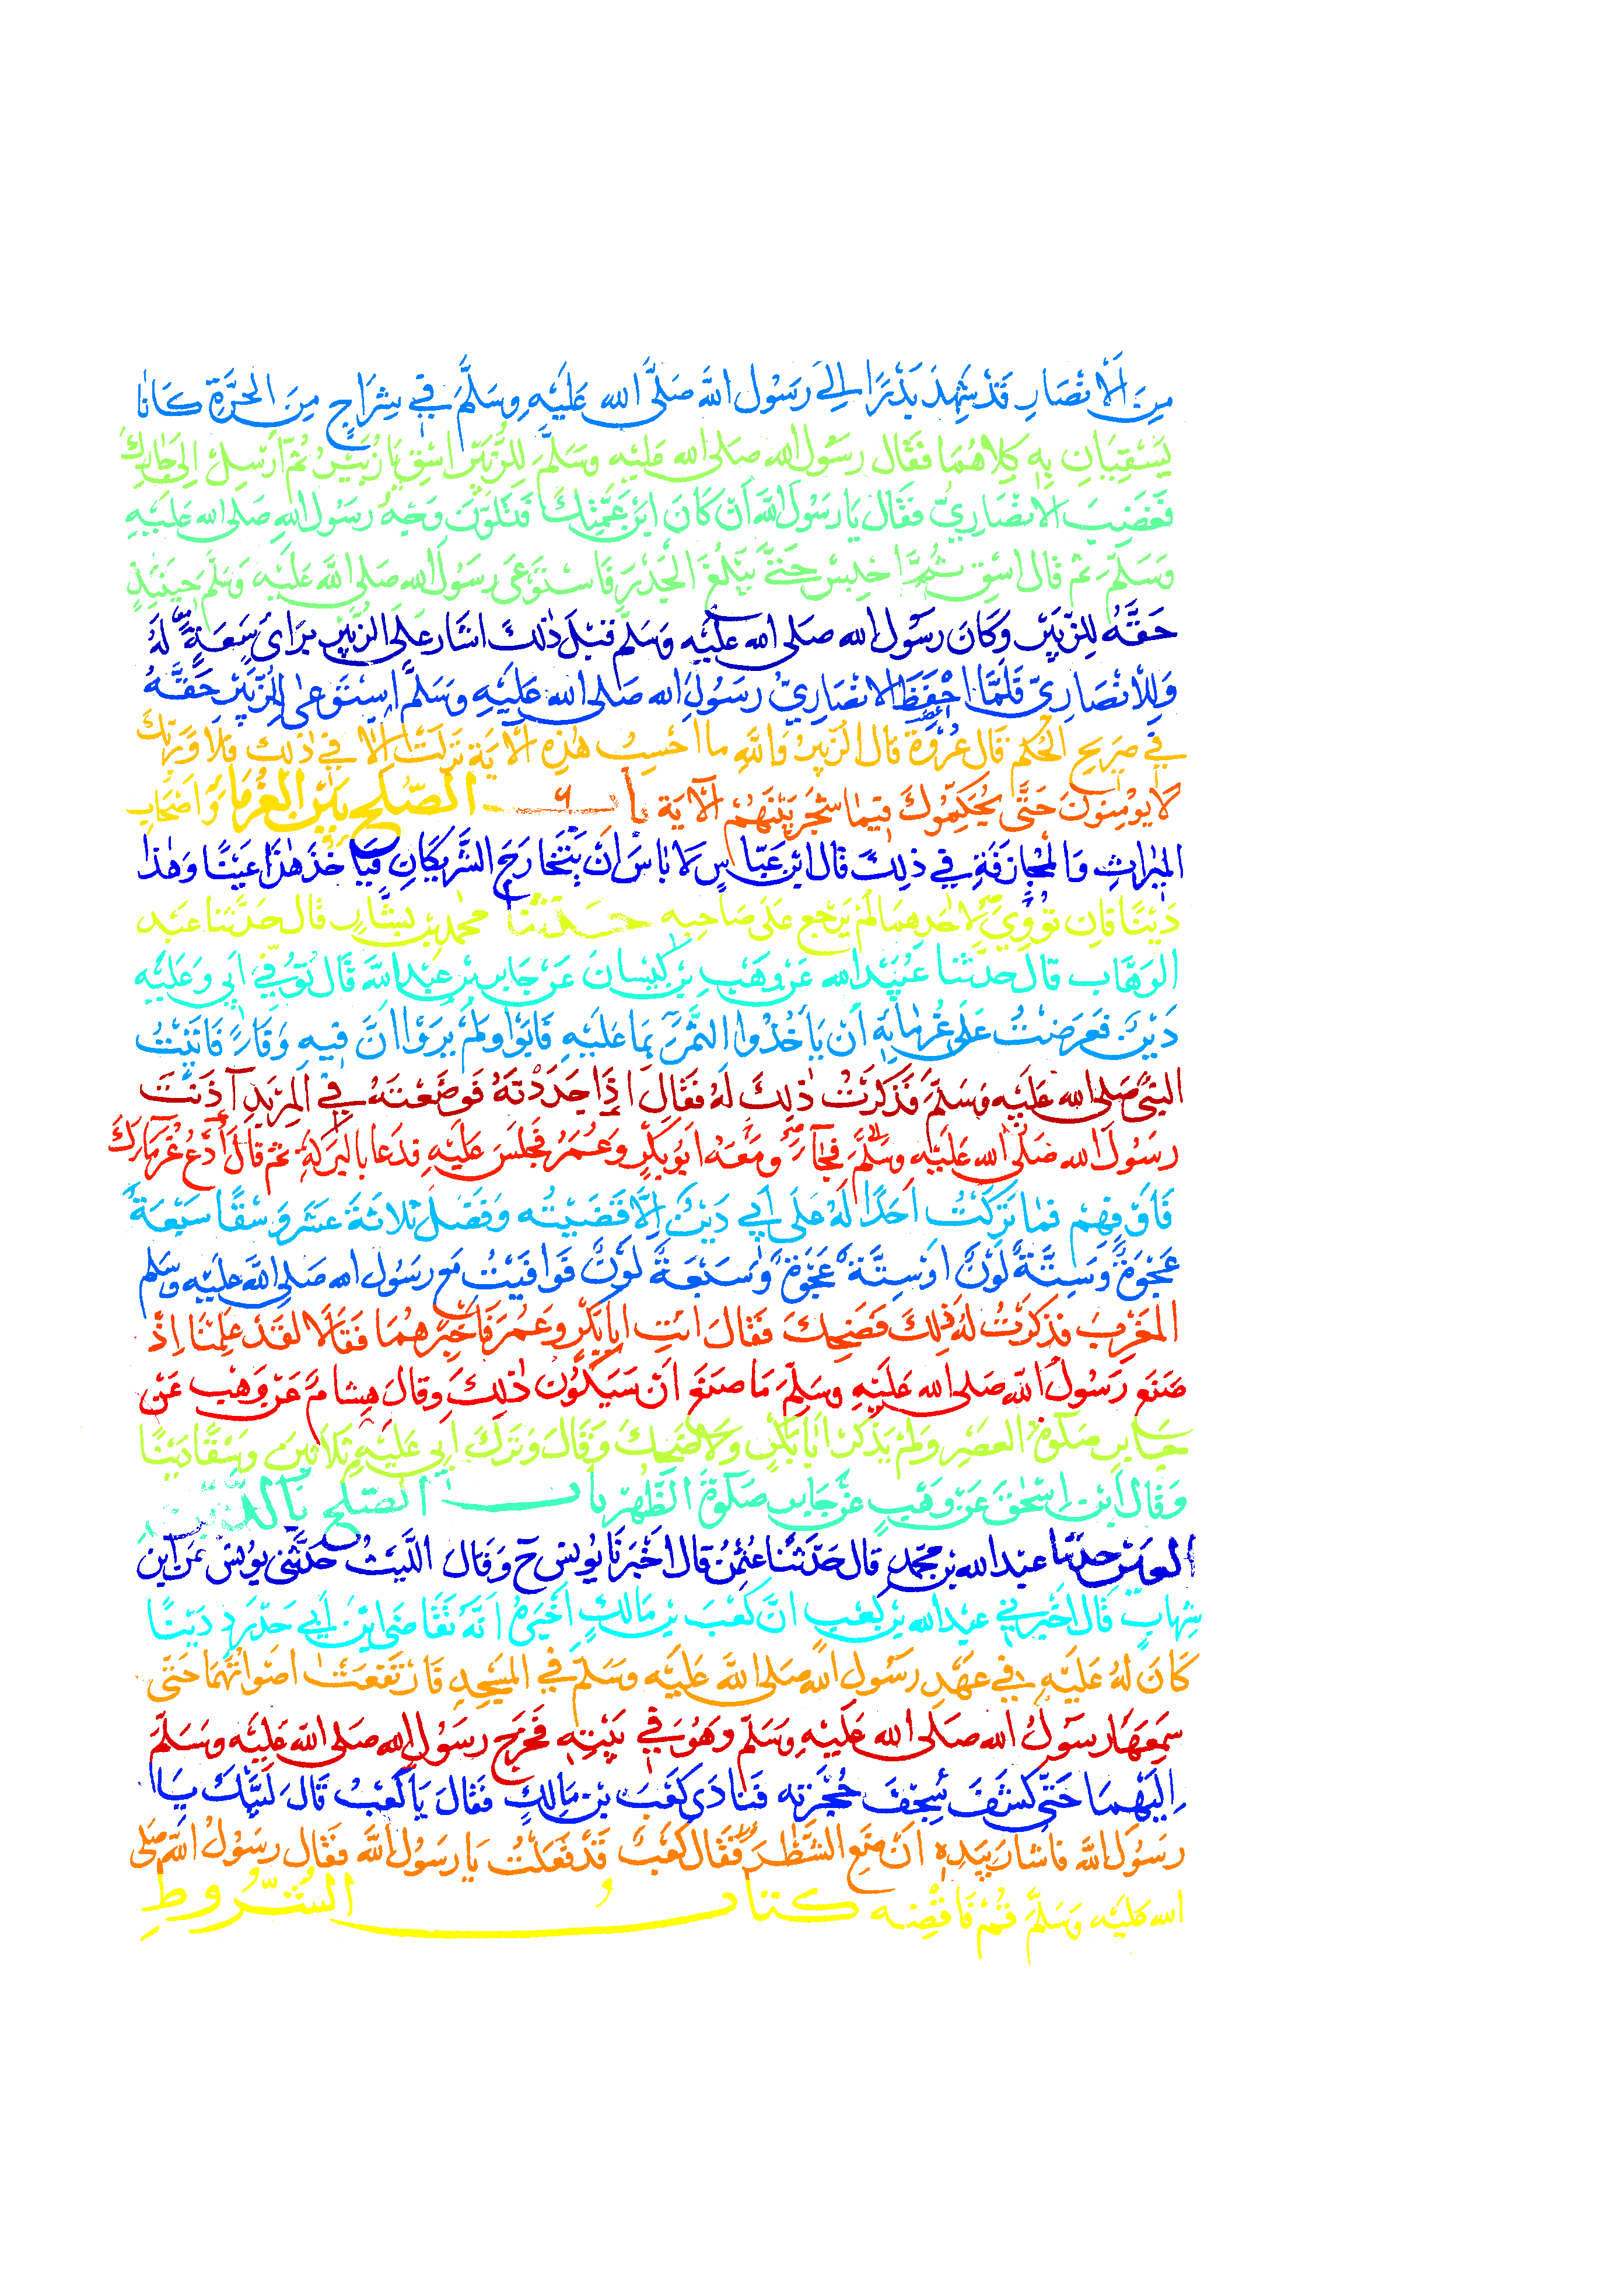 مِنَ الْاَنْصَارِ قَدْ شَهِدَ بَدْرًا اِلَى رَسُوْلِ اللهِ صَلَّى الله عَلَيْهِ وَسَلَّمَ فِيْ شِرَاجٍ مِنَ الْحَرَّةِ كَانَا
يَسْقِيَانِ بِهٖ كِلَاهُمَا فَقَال رَسُوْلُ الله صَلى الله عَليْهِ وسَلَّمَ لِلزُّبَيْرِ اسْقِ يَا زُبَيْرُ ثمّ اَرْسِلْ اِلىٰ جَارِكَ
فَغَضِبَ الانْصَارِيُّ فَقَال يَا رَسُوْلَ اللهِ اَنْ كَانَ ابْنَ عَمَّتِكَ فَتَلَوَّنَ وَجْهُ رَسُوْلِ اللهِ صَلى الله عَليْهِ
وَسَلَّمَ ثمّ قَال اسْقِ ثُمَّ احْبِسْ حَتّٰى يَبْلُغَ الْجَدْرَ فَاسْتَوْعٰى رَسُوْلُ الله صَلى اللهُ عَلَيْهِ وَسَلَّمَ حِيْنَئِذٍ
حَقَّهُ لِلزُّبَيْرِ وَكَانَ رَسُوْلُ الله صَلى الله عَلَيْهِ وَسَلم قَبْلَ ذٰلِكَ اشَارَ عَلَى الزُّبَيْرِ بِرَاْيٍ سَعَةٍ لَهُ
وَلِلْاَنْصَارِيِّ فَلَمَّا احْفَظَ الانْصَارِيُّ رَسُوْلَ الله صَلى الله عَلَيْهِ وَسَلَّمَ اسْتَوْعىٰ لِلزُّبَيْرِ حَقَّهُ
فِيْ صَرِيْحِ الْحُكْمِ قَالَ عُرْوَةُ قَالَ الزُّبَيْرُ وَاللهِ ما احْسِبُ هٰذِهِ الْاٰيَةَ نَزَلَتْ اِلَّا فِيْ ذٰلِكَ فَلَا وَرَبِّكَ
لَا يُوْمِنُوْنَ حَتَّى يُحَكِّمُوْكَ فِيْمَا شَجَرَ بَيْنَهُمْ الْاٰيَة بَاب الصُّلْحِ بَيْنَ الْغُرَمَاءِ وَاَصْحَابِ
الْمِيْرَاثِ وَالْمُجَازَفَةِ فِي ذٰلِكَ قَالَ ابْنُ عَبَّاسٍ لَا بَاسَ اَنْ يَتَخَارَجَ الشَّرِيْكَانِ فَيَاْخُذَ هٰذَا عَيْنًا وَهٰذَا
دَيْنًا فَاِنْ تَوِيَ لِاَحَدِهِمَا لَمْ يَرْجِعْ عَلَى صَاحِبِهِ حَدَّثَنَا مُحَمَّدُ بْنُ بَشَّارٍ قَال حَدَّثَنَا عَبْدُ
الْوَهَّابِ قَال حَدَّثَنَا عُبَيْدُ الله عَنْ وَهْبِ بْنِ كَيْسَانَ عَنْ جَابِرِ بْنِ عَبْدِ اللهِ قَالَ تُوُفِّيَ اَبِي وَعَلَيْهِ
دَيْنٌ فَعَرَضْتُ عَلَى غُرَمَائِهِ اَنْ يَاْخُذُوا التَّمْرَ بِمَا عَلَيْهِ فَاَبَوْا وَلَمْ يَرَوْا اَنَّ فِيهِ وَفَاءً فَاَتَيْتُ
النَّبِيَّ صَلى الله عَلَيْهِ وَسَلَّمَ فَذَكَرْتُ ذٰلِكَ لَهُ فَقَالَ اِذَا جَدَدْتَهُ فَوَضَعْتَهُ فِي الْمِرْبَدِ آذَنْتَ
رَسُوْلَ الله صَلَّى الله عَلَيْهِ وَسَلَّمَ فَجَاءَ وَمَعَهُ اَبُوْ بَكْرٍ وَعُمَرُ فَجَلَسَ عَلَيْهِ فَدَعَا بِالْبَرَكَةِ ثمّ قَالَ اُدْعُ غُرَمَاءَكَ
فَاَوْفِهِمْ فَمَا تَرَكْتُ اَحَدًا لَهُ عَلَى اَبِي دَيْنٌ اِلَّا قَضَيْتُه وَفَضَلَ ثَلَاثَةَ عَشَرَ وَسْقًا سَبْعَةٌ
عَجْوَةٌ وَسِتَّةٌ لَوْنٌ اَوْ سِتَّةٌ عَجْوَةٌ وَسَبْعَةٌ لَوْنٌ فَوَافَيْتُ مَع رَسُوْلِ الله صَلى اللهُ عَلَيْهِ وَسَلم
الْمَغْرِبَ فَذَكَرْتُ لَهُ ذٰلِكَ فَضَحِكَ فَقَالَ ائْتِ اَبَا بَكْرٍ وَعُمَرَ فَاَخْبِرْهُمَا فَقَالَا لَقَدْ عَلِمْنَا اِذْ
صَنَعَ رَسُوْلُ اللهِ صَلى الله عَلَيْهِ وَسَلَّمَ مَا صَنَعَ اَنْ سَيَكُوْنُ ذٰلِكَ وَقَالَ هِشَامٌ عَنْ وَهْبٍ عَنْ
جَابِرٍ صَلوٰةَ الْعَصْرِ وَلَمْ يَذْكُرْ اَبَا بَكْرٍ وَلَا ضَحِكَ وَقَالَ وَتَرَكَ اَبِي عَلَيْهِ ثَلَاثِيْنَ وَسْقًا دَيْنًا
وَقَالَ ابْنُ اِسْحٰقَ عَنْ وَهْبٍ عَنْ جَابِرٍ صَلوٰةَ الظُّهْرِ بَاب الصُّلْحِ بِالدَّيْنِ
وَالْعَيْنِ حَدَّثَنَا عَبْدُ الله بْنُ مُحَمَّدٍ قَالَ حَدَّثَنَا عُثْمٰنُ قَالَ اَخْبَرَنَا يُوْنُسُ ح وَقَالَ اللَّيْثُ حَدَّثَنِي يُوْنُسُ عَنِ ابْنِ
شِهَابٍ قَالَ اَخْبَرَنِي عَبْدُ الله بْنُ كَعْبٍ اَنَّ كَعْبَ بْنَ مَالِكٍ اَخْبَرَهُ اَنَّهُ تَقَاضَى ابْنَ اَبِي حَدْرَدٍ دَيْنًا
كَانَ لَهُ عَلَيْهِ فِي عَهْدِ رَسُوْلِ اللهِ صَلى اللهُ عَلَيْهِ وَسَلَّمَ فِي الْمَسْجِدِ فَارْتَفَعَتْ اَصْوَاتُهُمَا حَتّٰى
سَمِعَهَا رَسُوْلُ الله صَلَى الله عَلَيْهِ وَسَلَّمَ وَهُوَ فِي بَيْتِهِ فَخَرَجَ رَسُوْلُ الله صَلى اللهُ عَلَيْهِ وَسَلَّمَ
اِلَيْهِمَا حَتَّى كَشَفَ سِجْفَ حُجْرَتِهِ فَنَادَى كَعْبَ بْنَ مَالِكٍ فَقَالَ يَا كَعْبُ قَالَ لَبَّيْكَ يَا
رَسُوْلَ اللهِ فَاَشَارَ بِيَدِهِ اَنْ ضَعِ الشَّطْرَ فَقَالَ كَعْبٌ قَدْ فَعَلْتُ يَا رَسُوْلَ اللهِ فَقَال رَسُوْلُ اللهِ صَلى
الله عَلَيْهِ وَسَلَّمَ قُمْ فَاقْضِهِ كِتَابُ الشُّرُوْطِ